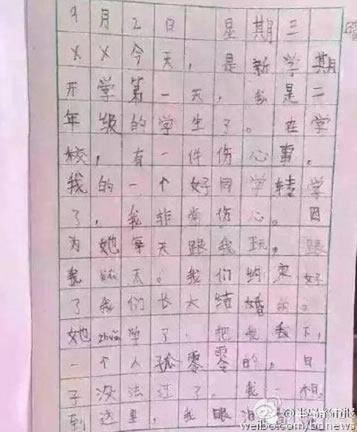 9月2日 星期三
X X今天，是新学期
开学第一天，我是二
年级的学生了。在学
校，有一件伤心事，
我的一个好同学转学
了，我非常伤心。因
为她每天跟我玩，跟
我聊天。我们约定好
了我们长大结婚的。
她zhuǎn学了，把我丢下，
一个人孤零零的，日
子没法过了。我一想
到这里，我眼泪
weibo.com/bdnews